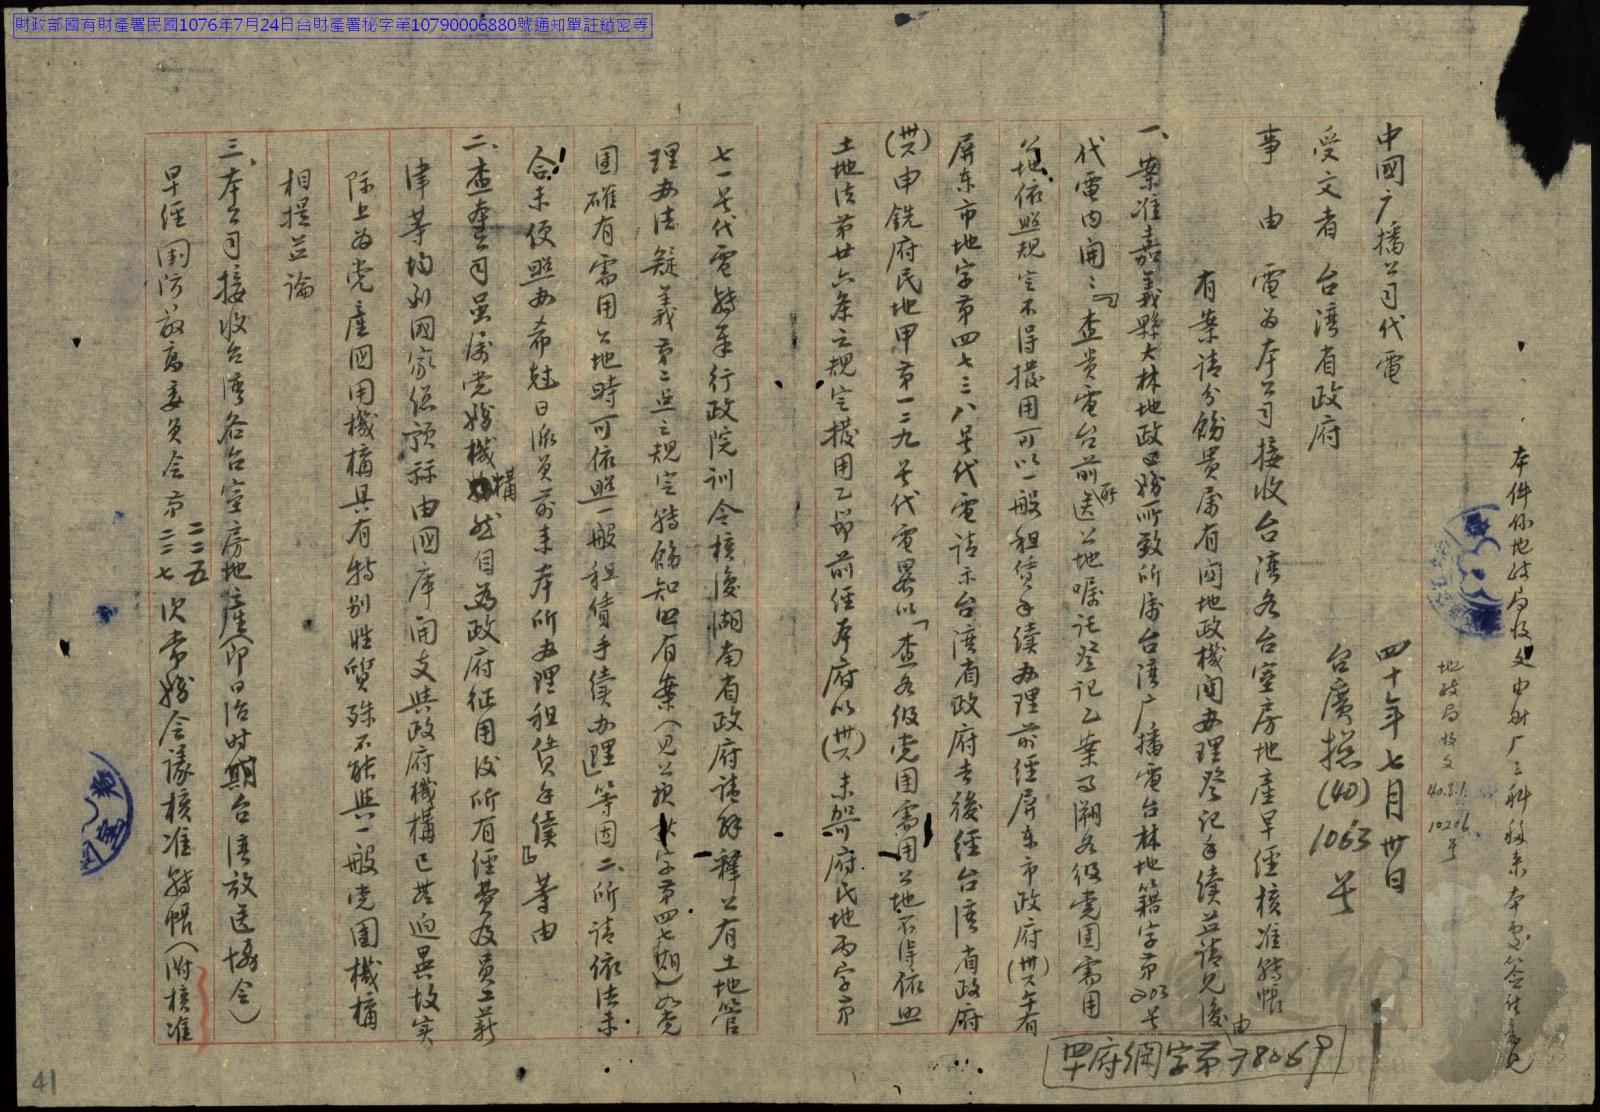 財政部國有財產署民國1076年7月24日台財產署祕字第10790006880號通知單註銷密等
本件係地政局收文由財厂三科移來本
地政局收文
40.8.1.
10206
号
中國广播公司代電
四十年七月卅日
受文者 台湾省政府
台廣捴(40)1063号
事 由 電为本公司接收台湾各台室房地產早經核准轉帳
有案請分飭貴属有関地政機関办理登记手續並請見復由
一、案准嘉義縣大林地政事務所致所属台湾广播電台林地籍字第203号
代電内開:『查貴電台前所送公地嘱託登记乙案 各级党団需用
公地依照規定不得撥用可以一般租賃手續办理前經屏東市政府(卅八)午有
屏東市地字第四七三八号代電請示台湾省政府去後經台湾省政府
(卅八)申銑府民地甲第一二九号代電畧以「查各级党団需用公地不得依照
土地法第廿六条之規定撥用乙節前經本府以(卅八)未 府民地丙字第
七一号代電轉奉行政院訓令核復湖南省政府請解釋公有土地管
理办法疑義第二点之規定轉飭知照有案(見公报秋字第四七期)如党
団確有需用公地時可依照一般租賃手續办理」等因二、所請依法未
合未便照办希尅日派員前来本所办理租賃手續』等由
二、查本公司虽属党務機構然自为政府征用後所有經費及員工薪
津等均列国家总預祘由国庫開支與政府機構已甚迫異故实
际上为党產国用機構具有特别性質殊不能與一般党団機構
相提並論
三、本公司接收台湾各台室房地產(即日治时期台湾放送協会)
早經国防最高委員会第二二五二三七次常務会議核准轉帳(附核准
早府綱字第78669
41